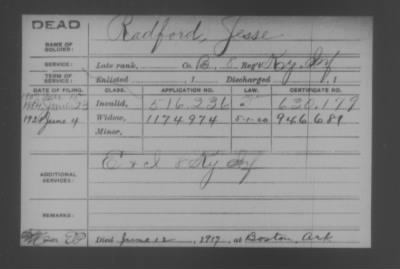 DEAD
NAME OF SOLDIER: Radford, Jesse
SERVICE: Late rank, Co. B, 8 Reg't Ky Inf
TERM OF SERVICE: Enlisted , 1 Discharged , 1
DATE OF FILING. CLASS. APPLICATION NO. LAW. CERTIFICATE NO.
Invalid, 516.236 630.177
1920 June 4 Widow, 1174974 5-1-20 946681
Minor,
ADDITIONAL SERVICES: E & I 8 Ky Inf
REMARKS:
Died June 12, 1917, at Boston, Ark